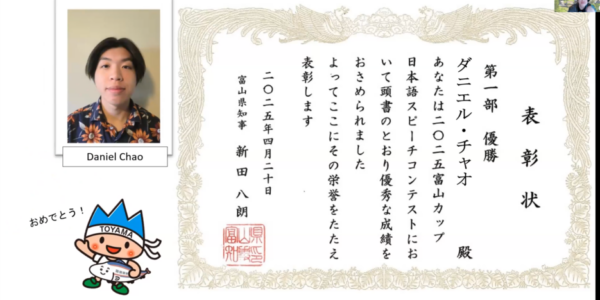 Daniel Chao
おめでとう!
TOYAMA
表彰状
第一部 優勝
ダニエル・チャオ 殿
あなたは二〇二五富山カップ
日本語スピーチコンテストにお
いて頭書のとおり優秀な成績を
おさめられました
よってここにその栄誉をたたえ
表彰します
二〇二五年四月二十日
富山県知事 新田八朗